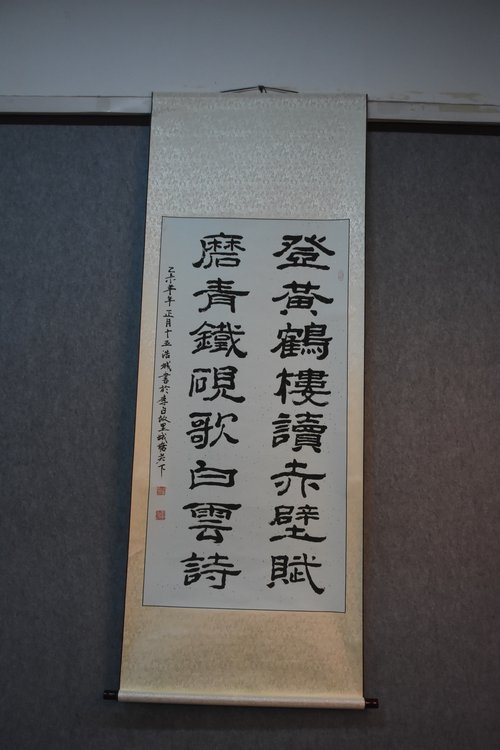 登黃鶴樓讀赤壁賦
磨青鐵硯歌白雲詩
乙未年正月十五浩城書於李白故里